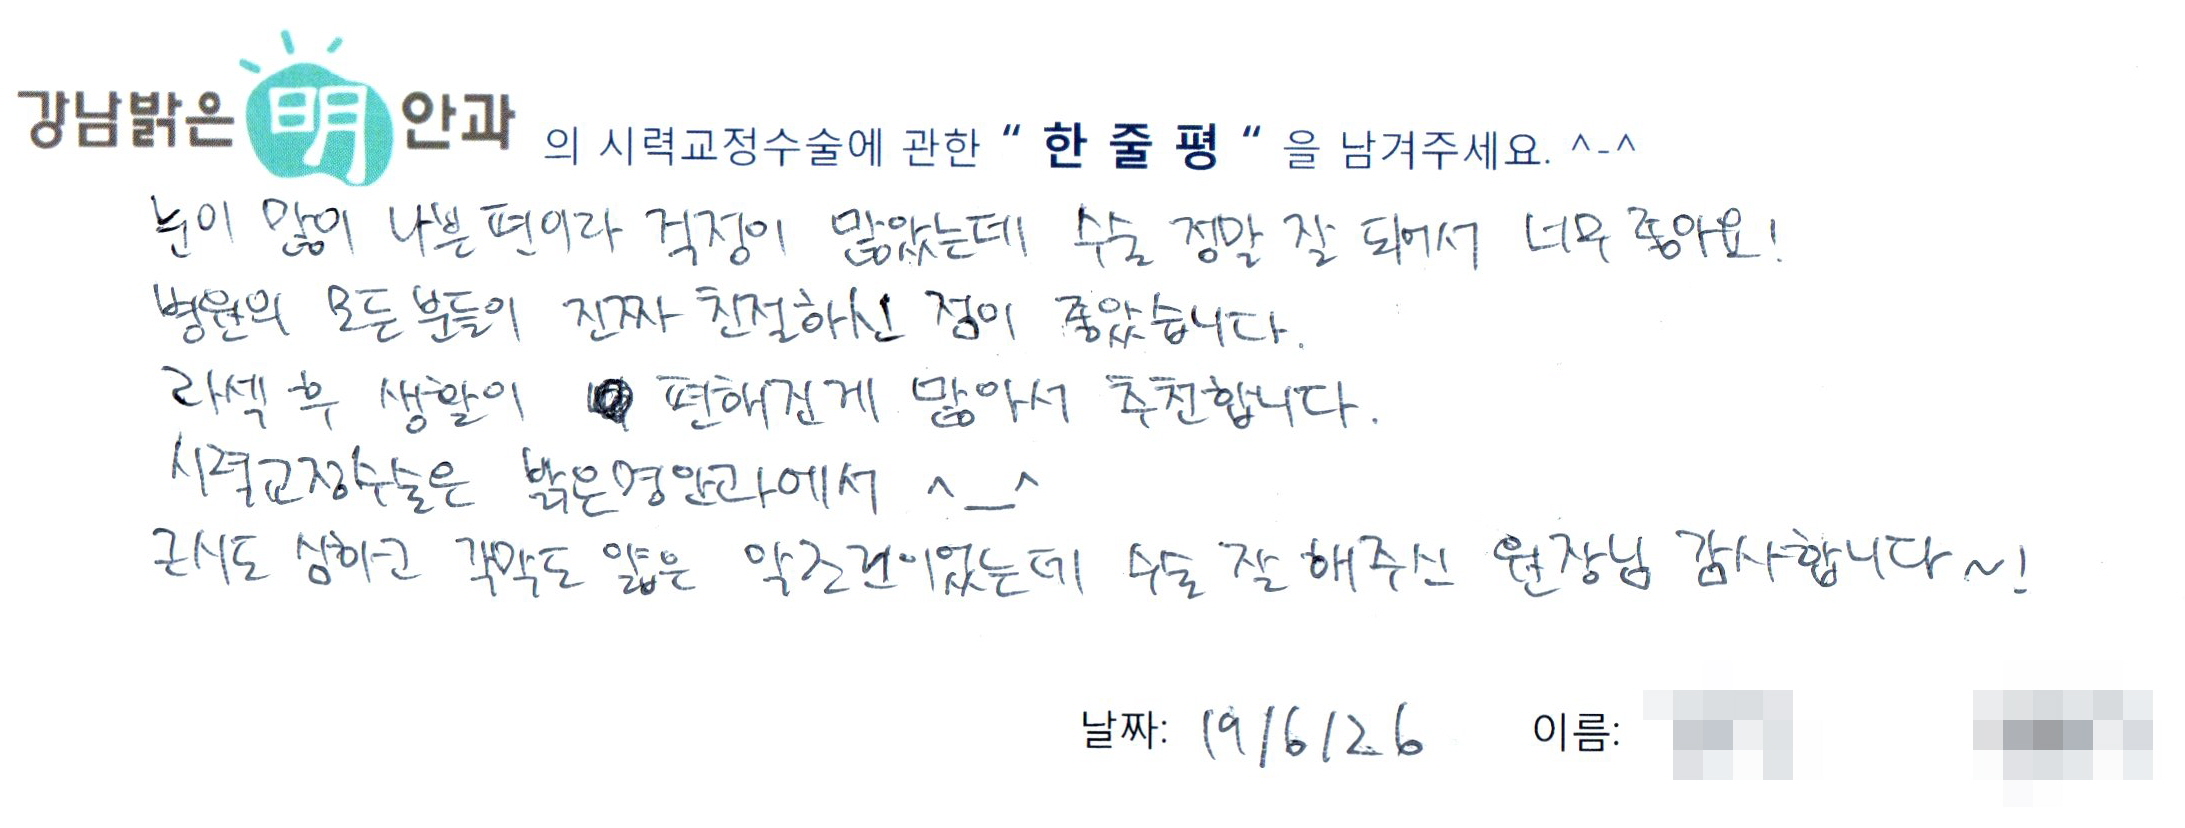 강남밝은 明 안과 의 시력교정수술에 관한 “ 한 줄 평 “ 을 남겨주세요. ^-^
눈이 많이 나쁜 편이라 걱정이 많았는데 수술 정말 잘 되어서 너무 좋아요!
병원의 모든 분들이 진짜 친절하신 점이 좋았습니다.
라섹 후 생활이 편해진게 많아서 추천합니다.
시력교정수술은 밝은명안과에서 ^__^
근시도 심하고 각막도 얇은 악조건이었는데 수술 잘 해주신 원장님 감사합니다~!
날짜: 19/6/26 이름: